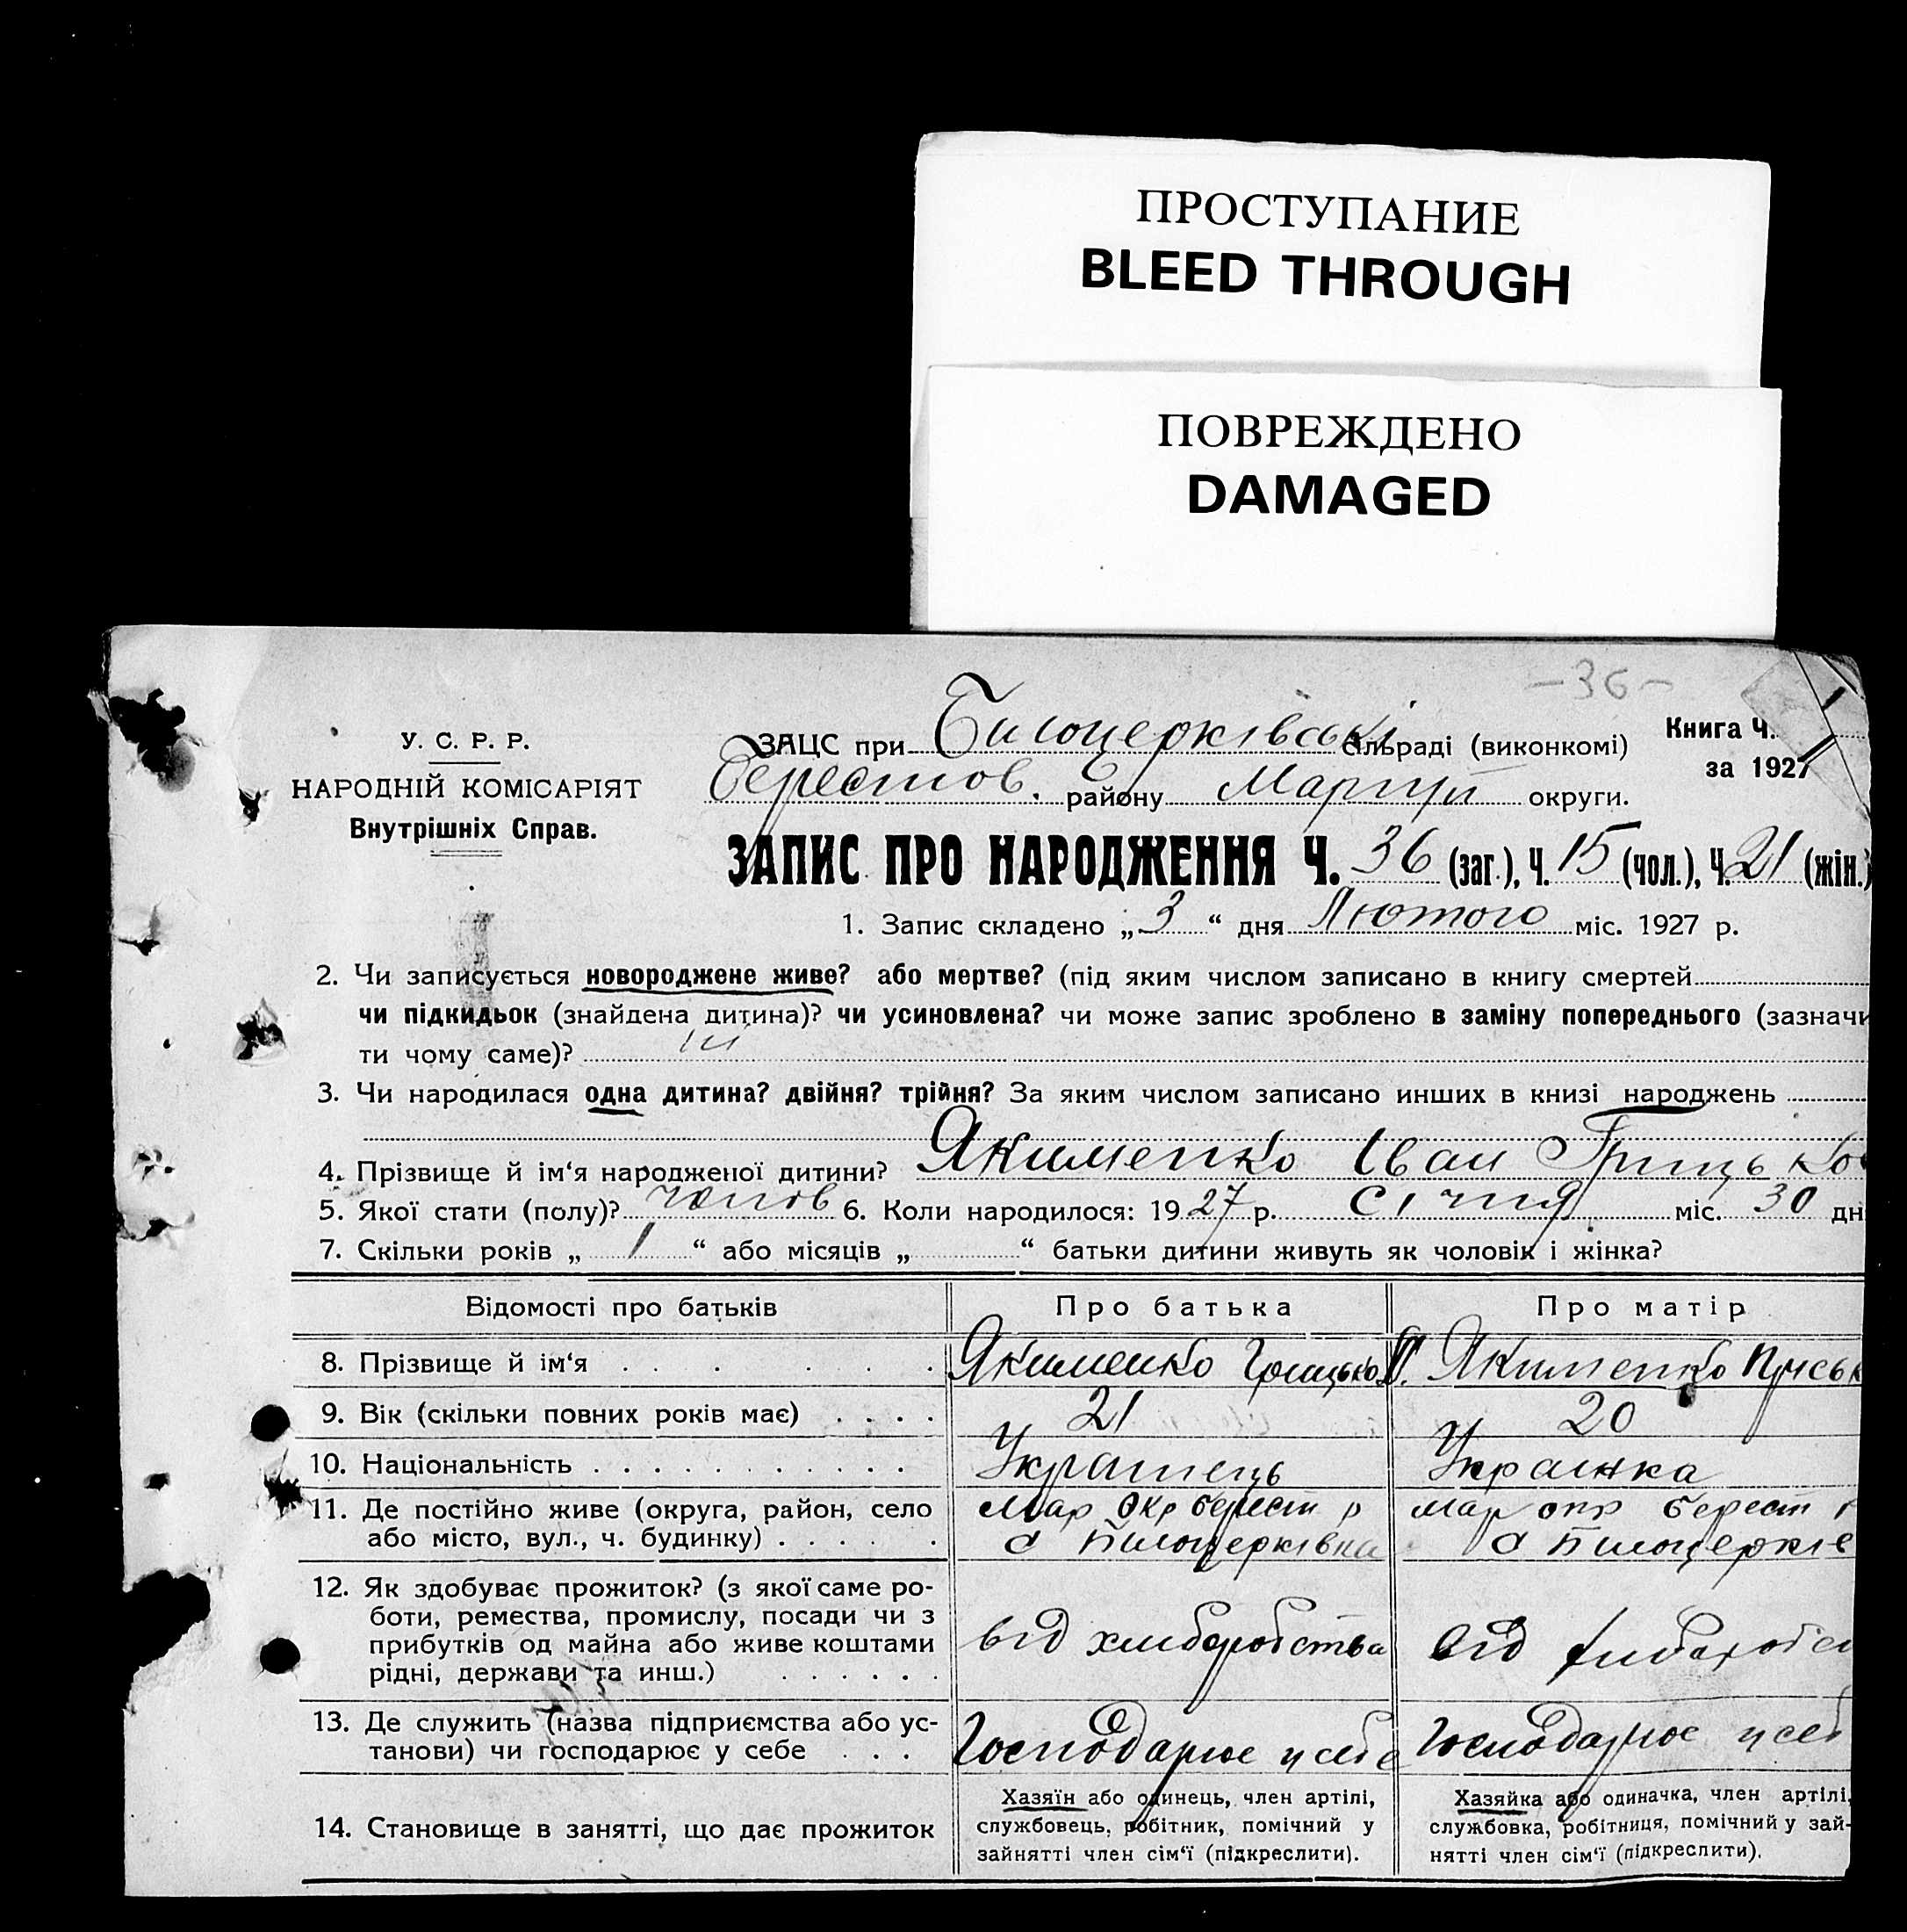 ПРОСТУПАНИЕ
BLEED THROUGH
ПОВРЕЖДЕНО
DAMAGED
-36-
У. С. Р. Р.
НАРОДНІЙ КОМІСАРІЯТ
Внутрішніх Справ.
ЗАЦС при Билоцерківські сільраді (виконкомі)
Книга Ч.
за 1927
Берестов. району Маріуп округи.
ЗАПИС ПРО НАРОДЖЕННЯ Ч. 36 (заг.), Ч. 15 (чол.), Ч. 21 (жін.)
1. Запис складено „3“ дня Лютого міс. 1927 р.
2. Чи записується новороджене живе? або мертве? (під яким числом записано в книгу смертей
чи підкидьок (знайдена дитина)? чи усиновлена? чи може запис зроблено в заміну попереднього (зазначи
ти чому саме)?
3. Чи народилася одна дитина? двійня? трійня? За яким числом записано инших в книзі народжень
4. Прізвище й ім‘я народженої дитини? Якименко Іван Грицько
5. Якої стати (полу)? чолов 6. Коли народилося: 1927 р. Січня міс. 30 дн
7. Скільки років „1“ або місяців „ “ батьки дитини живуть як чоловік і жінка?
Відомості про батьків Про батька Про матір
8. Прізвище й ім‘я Якименко Грицько П. Якименко Приськ
9. Вік (скільки повних років має) 21 20
10. Національність Українець Українка
11. Де постійно живе (округа, район, село Мар Окр Берест р Мар окр Берест р
або місто, вул., ч. будинку) с Билоцерківка с Билоцерків
12. Як здобуває прожиток? (з якої саме ро-
боти, ремества, промислу, посади чи з
прибутків од майна або живе коштами від хлиборобства від
рідні, держави та инш.)
13. Де служить (назва підприємства або ус-
танови) чи господарює у себе Господарює у себе Господарює у себ
14. Становище в занятті, що дає прожиток
Хазяїн або одинець, член артілі,
службовець, робітник, помічний у
зайнятті член сім‘ї (підкреслити).
Хазяйка або одиначка, член артілі,
службовка, робітниця, помічний у зай-
нятті член сім‘ї (підкреслити).